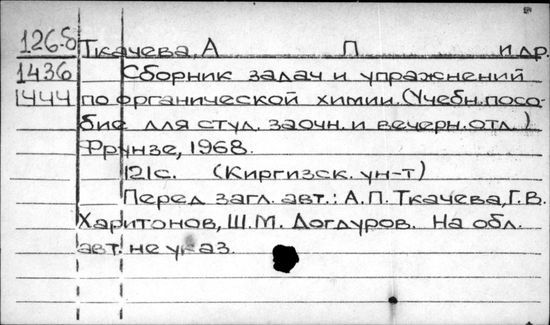 126.8 Ткачева, А П и др.
1436 Сборник задач и упражнений
1444 по органической химии. (Учебн. посо-
бие для студ. заочн. и вечерн. отд.)
Фрунзе, 1968.
121с. (Киргизск. ун-т)
Перед загл. авт.: А.П. Ткачева, Г.В.
Харитонов, Ш.М. Догдуров. На обл.
авт. не указ.